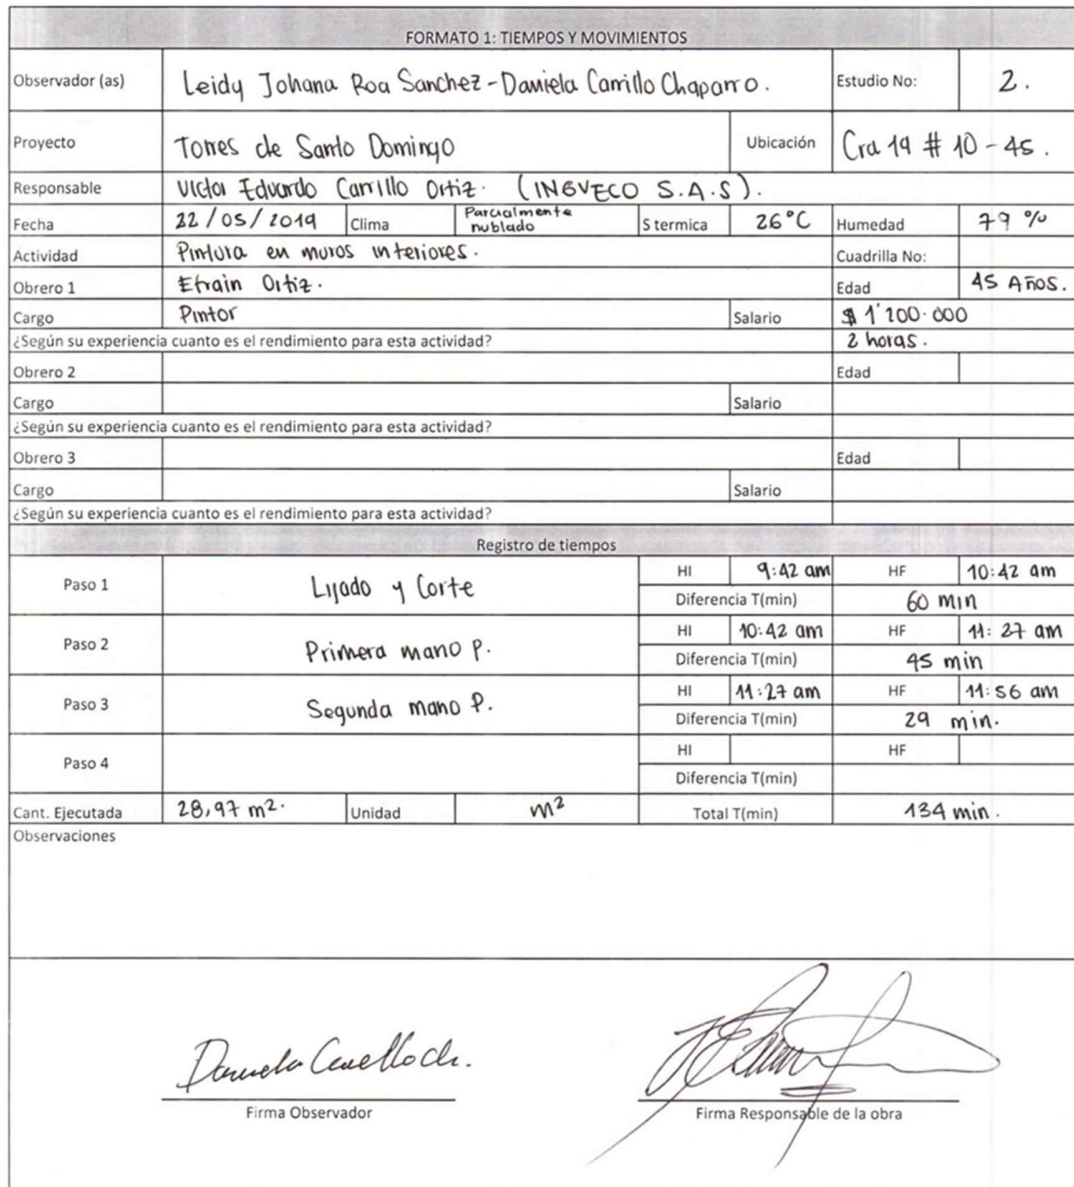 FORMATO 1: TIEMPOS Y MOVIMIENTOS
Observador (as) Leidy Johana Roa Sanchez - Daniela Carrillo Chaparro. Estudio No: 2.
Proyecto Torres de Santo Domingo Ubicación Cra 19 # 10-45.
Responsable Victor Eduardo Carrillo Ortiz. (INGVECO S.A.S).
Fecha 22/05/2019 Clima Parcialmente nublado S termica 26°C Humedad 79 %
Actividad Pintura en muros interiores. Cuadrilla No:
Obrero 1 Efrain Ortiz. Edad 45 AÑOS.
Cargo Pintor Salario $ 1'200.000
¿Según su experiencia cuanto es el rendimiento para esta actividad? 2 horas.
Obrero 2 Edad
Cargo Salario
¿Según su experiencia cuanto es el rendimiento para esta actividad?
Obrero 3 Edad
Cargo Salario
¿Según su experiencia cuanto es el rendimiento para esta actividad?
Registro de tiempos
Paso 1 Lijado y Corte HI 9:42 am HF 10:42 am
Diferencia T(min) 60 min
Paso 2 Primera mano P. HI 10:42 am HF 11:27 am
Diferencia T(min) 45 min
Paso 3 Segunda mano P. HI 11:27 am HF 11:56 am
Diferencia T(min) 29 min.
Paso 4 HI HF
Diferencia T(min)
Cant. Ejecutada 28,97 m². Unidad m² Total T(min) 134 min.
Observaciones
Firma Observador Firma Responsable de la obra